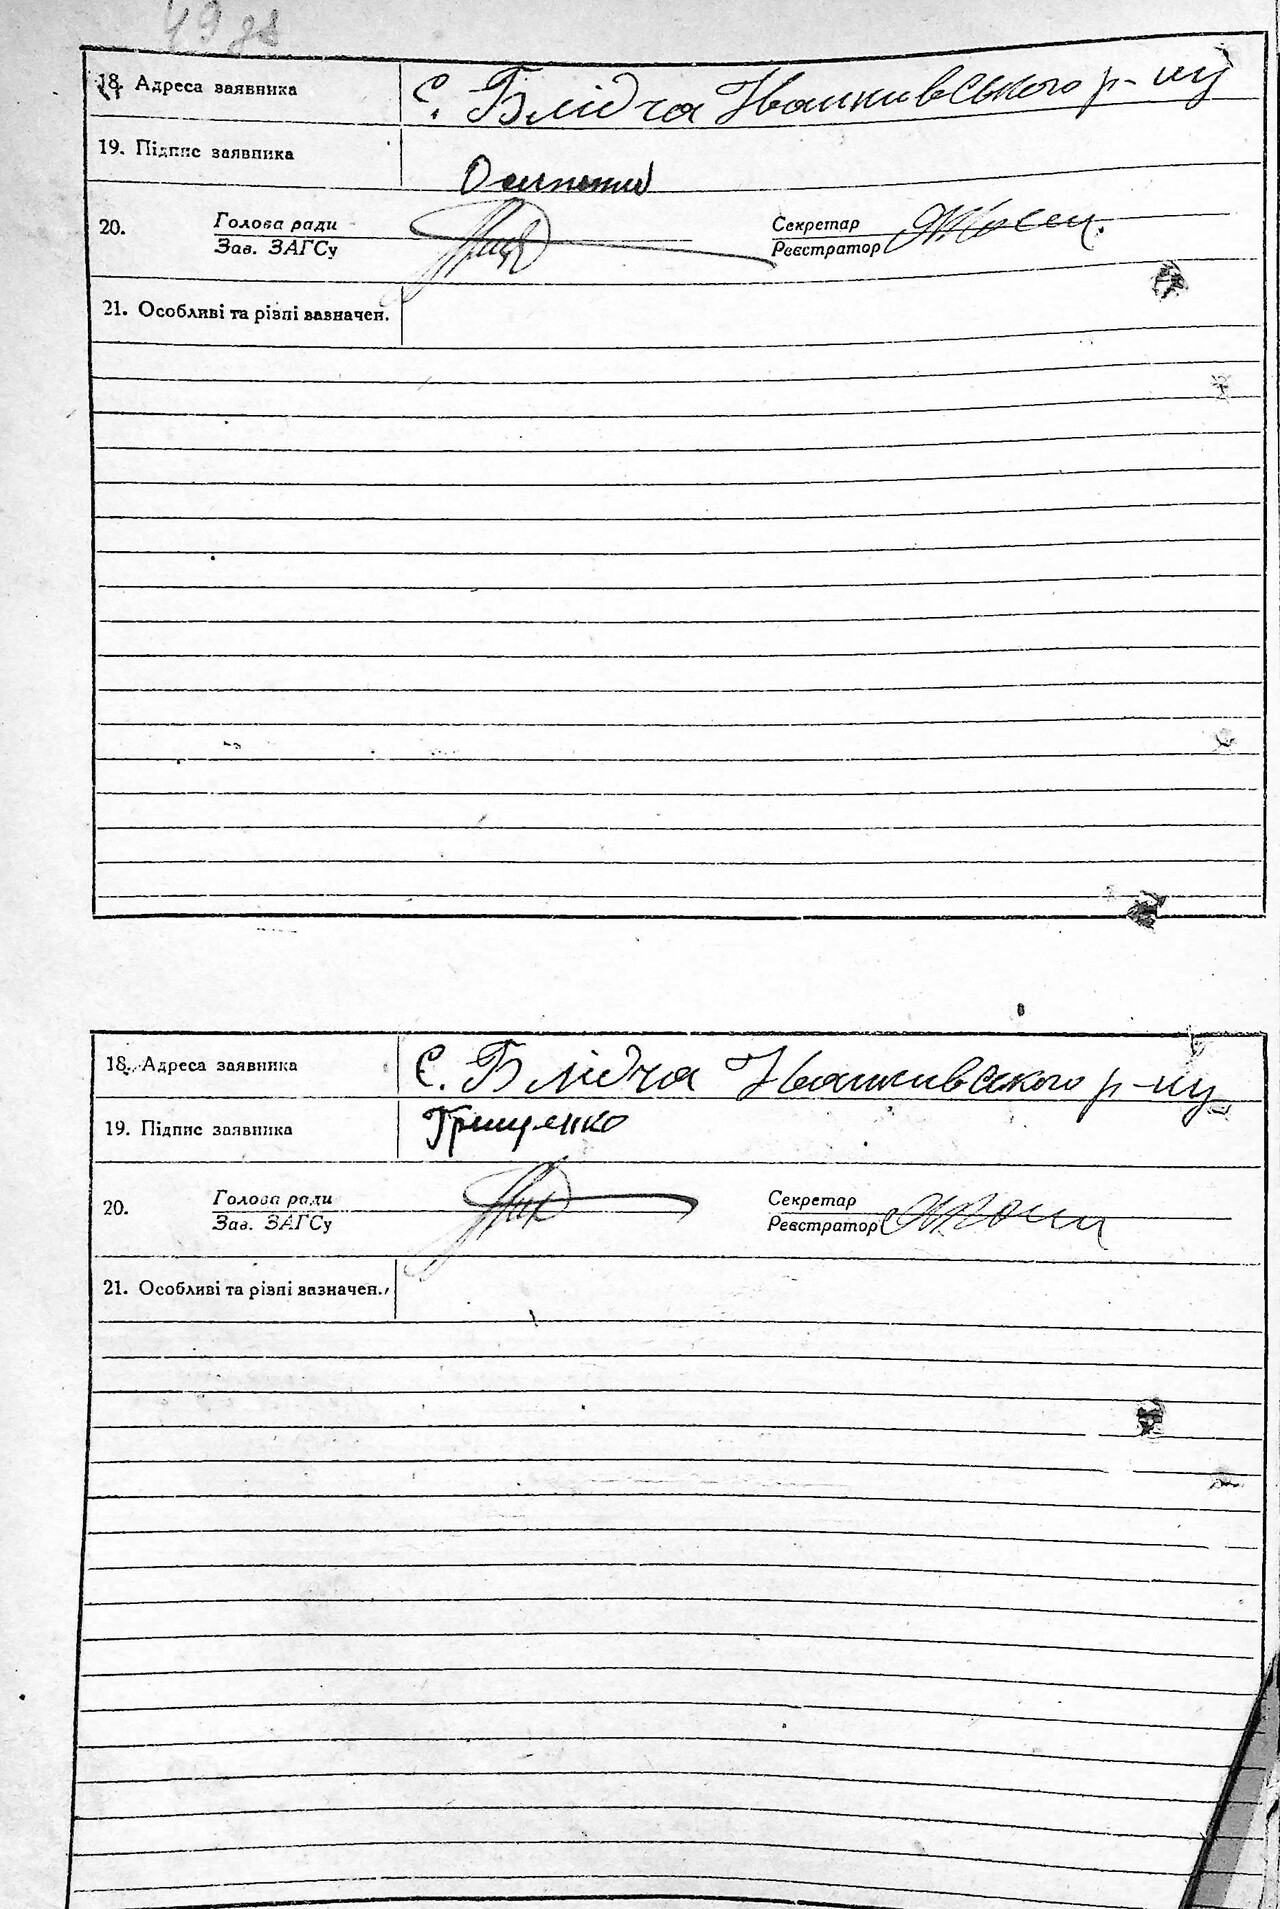 49 зв
18. Адреса заявника с. Блідча Іванківського р-ну
19. Підпис заявника
20. Голова ради Секретар
Зав. ЗАГСу Реєстратор
21. Особливі та різні вазначен.
18. Адреса заявника с. Блідча Іванківського р-ну
19. Підпис заявника Грищенко
20. Голова ради Секретар
Зав. ЗАГСу Реєстратор
21. Особливі та різні вазначен.